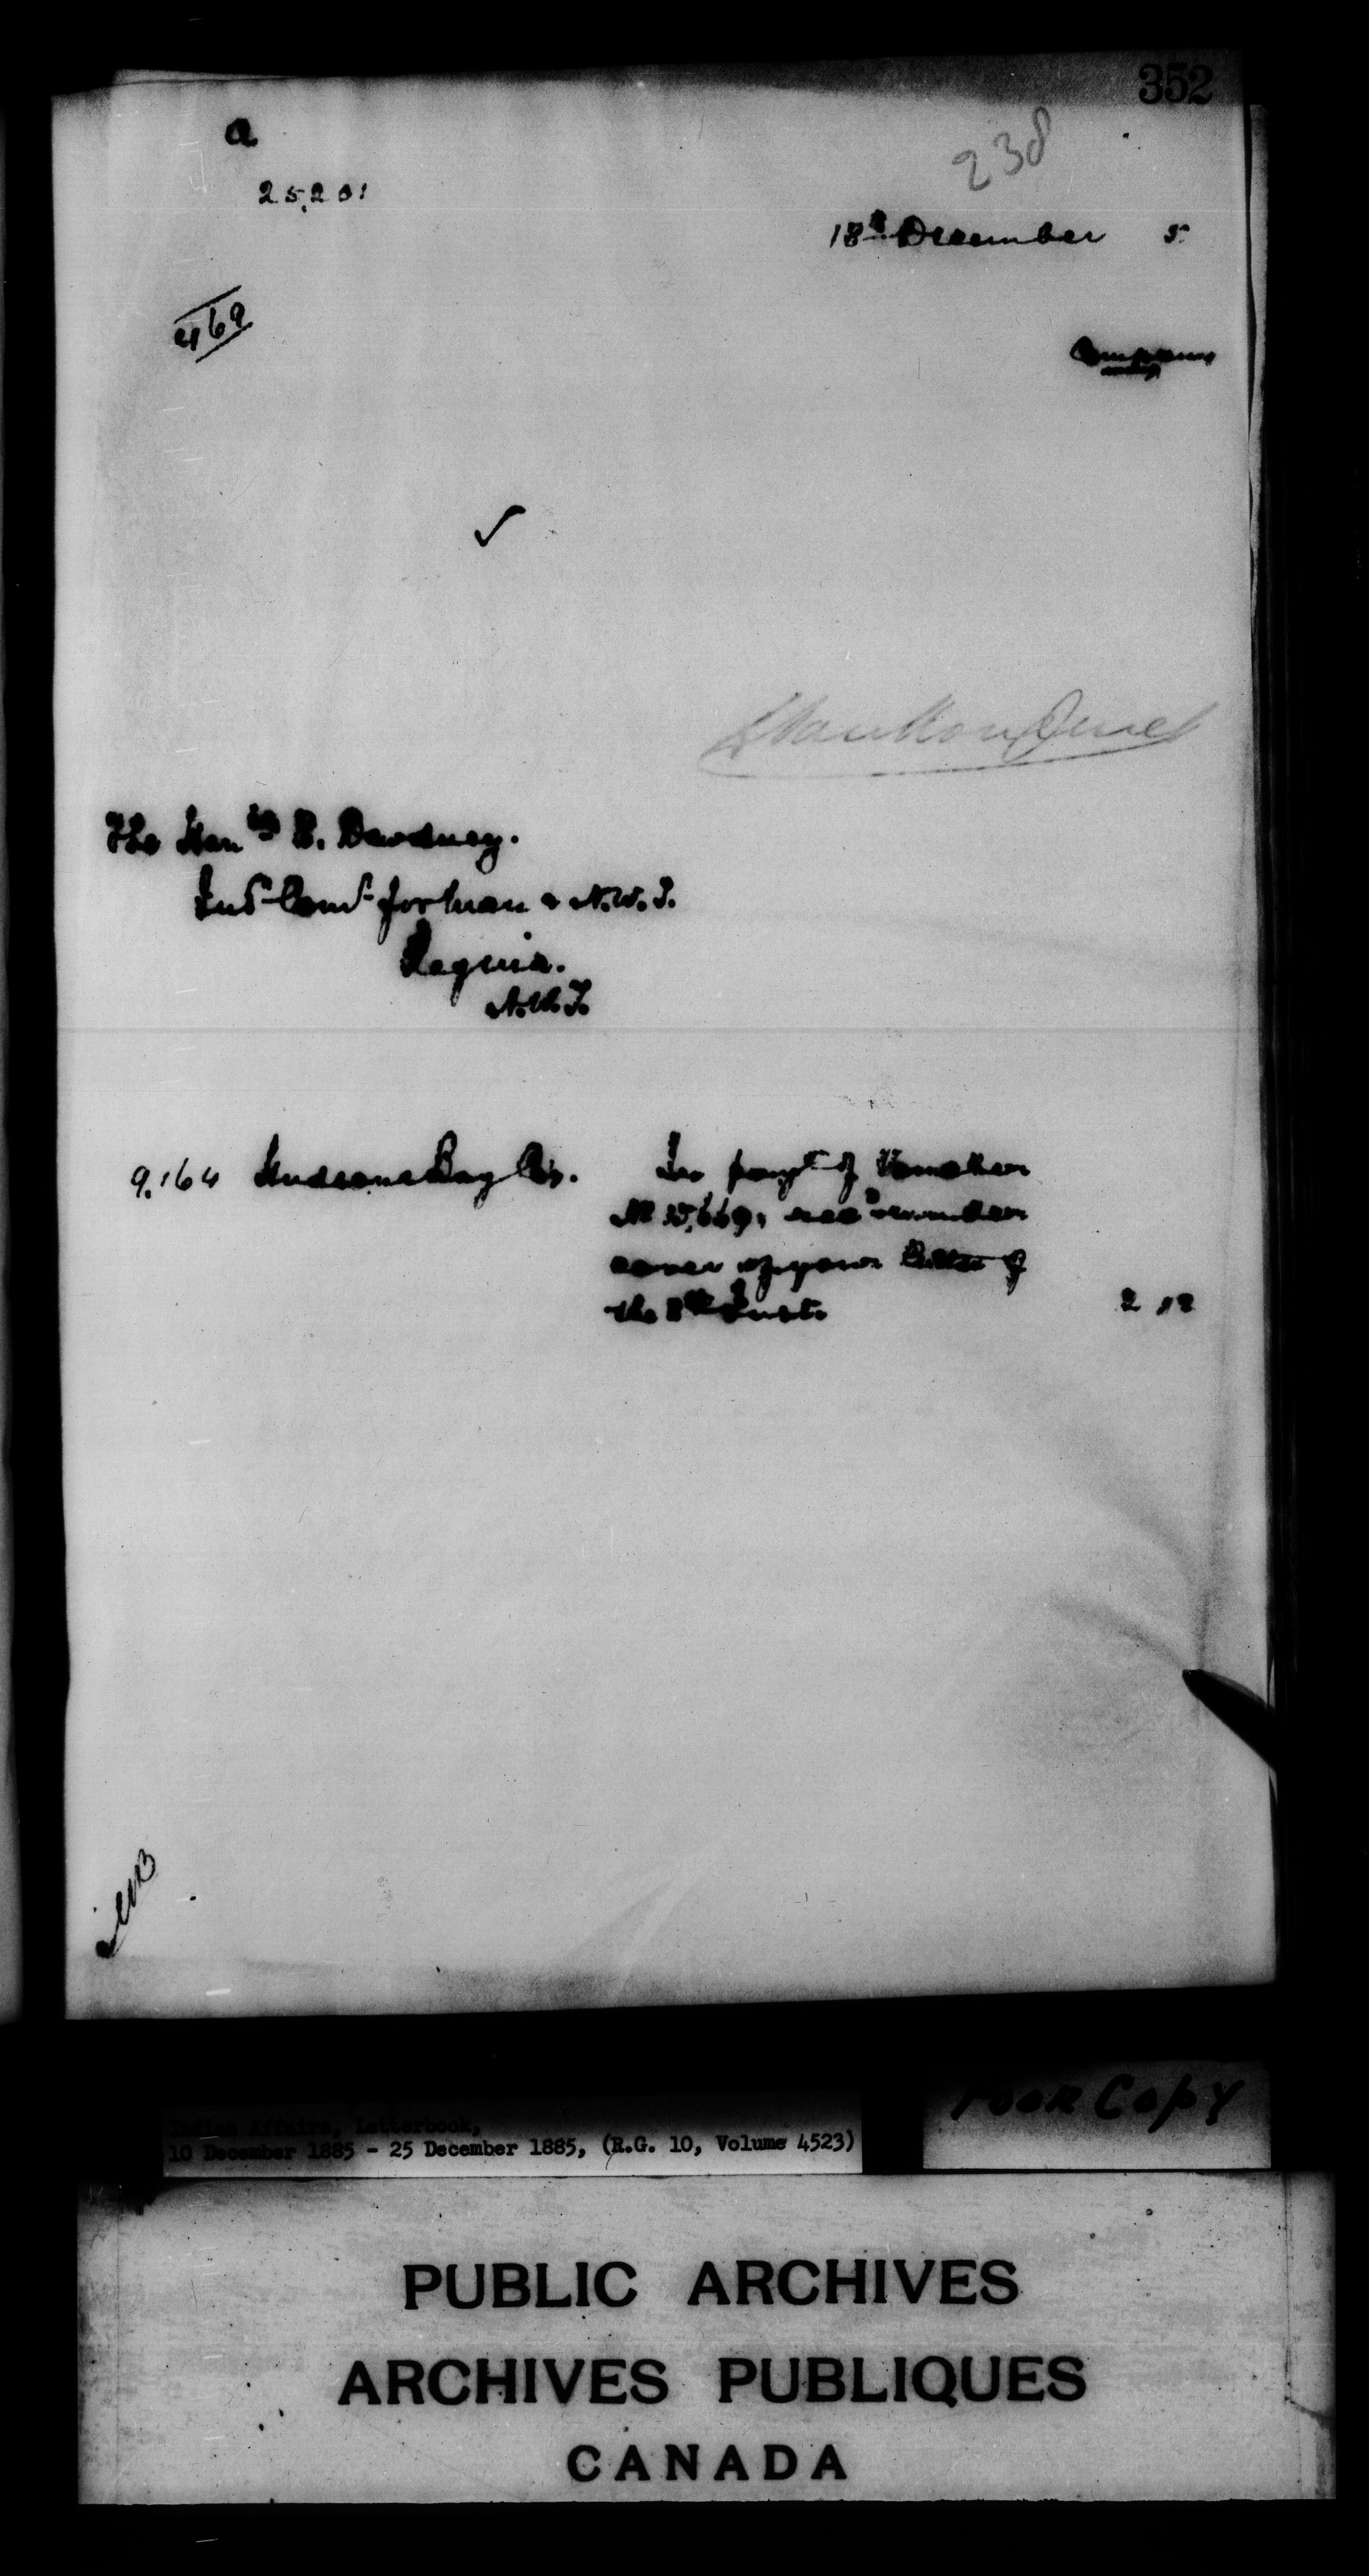 352
a
238
25,201
18th December 5
469
Company
✓
L VanKoughnet
The Honble E. Dewdney.
Ind. Comr. for Man & N.W.T.
Regina.
N.W.T.
9,164 Hudsons Bay Co. In payt of Voucher
No 35,669, recd under
cover of your letter of
the 8th Inst. 2 12
Poor Copy
Indian Affairs, Letterbook,
10 December 1885 - 25 December 1885, (R.G. 10, Volume 4523)
PUBLIC ARCHIVES
ARCHIVES PUBLIQUES
CANADA